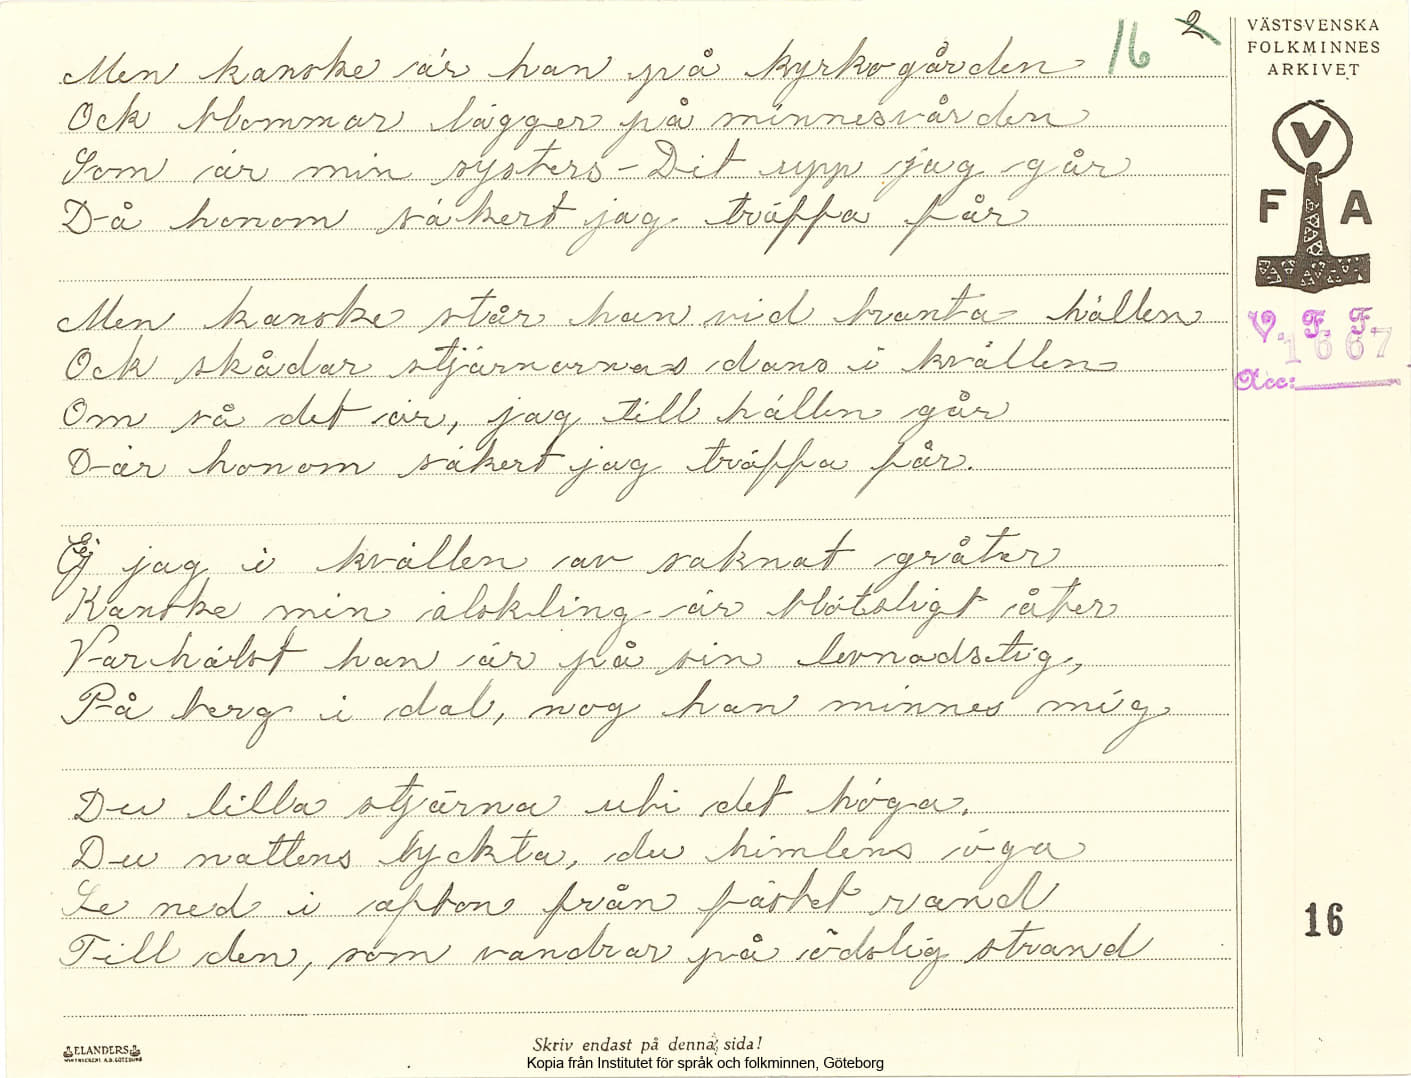 16 2
Men kanske är han på kyrkogården
Ock blommor lägger på minnesvården
Som är min systers – Dit upp jag går
Då honom säkert jag träffa får
Men kanske står han vid branta hällen
Ock skådar stjärnornas dans i kvällen
Om så det är, jag till hällen går
Där honom säkert jag träffa får.
Ej jag i kvällen av saknat gråter
Kanske min älskling är blötsligt åter
Varhälst han är på sin levnadstig,
På berg i dal, nog han minnes mig
Du lilla stjärna ubi det höga.
Du nattens lyckta, du himlens öga
Se ned i afton från fästet rand
Till den, som vandrar på ödslig strand
VÄSTSVENSKA
FOLKMINNES
ARKIVET
V
F A
V. F. F.
1667
Acc:
16
ELANDERS
Skriv endast på denna sida!
Kopia från Institutet för språk och folkminnen, Göteborg